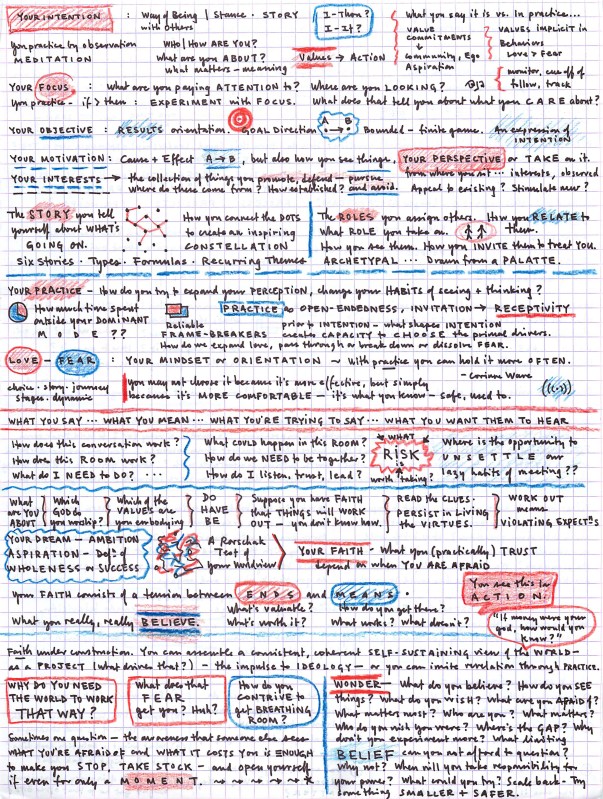 YOUR INTENTION : Way of Being | Stance · STORY with others
I-Thou?
I-It?
what you say it is vs. In practice...
VALUE COMMITMENTS
↓
Community, Ego
Aspiration
VALUES implicit in
Behaviors
Love > Fear
you practice by observation
MEDITATION
Who | How ARE YOU?
What are you ABOUT?
What matters - meaning
Values → ACTION
monitor, follow, track
YOUR FOCUS : What are you paying ATTENTION to? Where are you LOOKING?
you practice - if > then : EXPERIMENT with FOCUS. What does that tell you about what you CARE about?
YOUR OBJECTIVE : RESULTS orientation. GOAL Direction A → B Bounded - finite game. An expression of INTENTION
YOUR MOTIVATION : Cause + Effect A → B, but also how you see things, YOUR PERSPECTIVE or TAKE on it.
YOUR INTERESTS → the collection of things you promote, defend - pursue and avoid. from where you sit ... interests, observed
where do these come from? How established? Appeal to existing? Stimulate new?
The STORY you tell
yourself about WHAT'S
GOING ON.
How you connect the DOTS
to create an inspiring
CONSTELLATION
Six Stories · Types · Formulas · Recurring Themes
The ROLES you assign others. How you RELATE to them.
What ROLE you take on.
How you see them. How you INVITE them to treat you.
ARCHETYPAL ... Drawn from a PALATTE.
YOUR PRACTICE - How do you try to expand your PERCEPTION, change your HABITS of seeing + thinking?
How much time spent
outside your DOMINANT
MODE??
Reliable
FRAME-BREAKERS
PRACTICE as OPEN-ENDEDNESS, INVITATION → RECEPTIVITY
prior to INTENTION - what shapes INTENTION
creates CAPACITY to CHOOSE the primal drivers.
How do we expand love, pass through or break down or dissolve FEAR.
LOVE - FEAR : YOUR MINDSET or ORIENTATION ~ With practice you can hold it more OFTEN.
choice · story · journey
stages · dynamic
you may not choose it because it's more effective, but simply
because it's MORE COMFORTABLE - it's what you know - safe, used to.
- Corinne Ware
WHAT YOU SAY ... WHAT YOU MEAN ... WHAT YOU'RE TRYING TO SAY ... WHAT YOU WANT THEM TO HEAR
How does this conversation work?
How does this ROOM work?
What do I NEED to DO? ...
What COULD happen in this ROOM?
How do we NEED to be together?
How do I listen, trust, lead?
WHAT
RISK
worth taking?
Where is the opportunity to
UNSETTLE our
lazy habits of meeting??
What
are YOU
ABOUT
Which
GOD do
you worship?
Which of the
VALUES are
you embodying
DO
HAVE
BE
Suppose you have FAITH
that THINGS will WORK
OUT - you don't know how.
READ the CLUES.
PERSIST in LIVING
the VIRTUES.
WORK OUT
means
VIOLATING EXPECTNS
YOUR DREAM - AMBITION
ASPIRATION - Defn of
WHOLENESS or SUCCESS
A Rorschak
Test of
your worldview
YOUR FAITH - What you (practically) TRUST
depend on when YOU ARE AFRAID
Your FAITH consists of a tension between ENDS and MEANS.
What you really, really BELIEVE.
What's valuable?
What's worth it?
How do you get there?
What works? What doesn't?
You see this in
ACTION.
"If money were your
god, how would you
know?"
Faith under construction. You can assemble a consistent, coherent SELF-SUSTAINING view of the WORLD -
as a PROJECT (what drives that?) - the impulse to IDEOLOGY - or you can invite revelation through PRACTICE.
WHY DO YOU NEED
THE WORLD TO WORK
THAT WAY?
What does that
FEAR
get you? Huh?
How do you
CONTRIVE to
get BREATHING
ROOM?
Sometimes one question - the awareness that someone else sees
WHAT YOU'RE AFRAID of and WHAT IT COSTS YOU is ENOUGH
to make you STOP, TAKE STOCK - and open yourself
if even for only a MOMENT.
WONDER - What do you believe? How do you SEE
things? What do you WISH? What are you AFRAID of?
What matters most? Who are you? What matters?
Who do you wish you were? Where's the GAP? Why
don't you experiment more? What limiting
BELIEF can you not afford to question?
Why not? When will you take responsibility for
your power? What could you try? Scale back - Try
something SMALLER + SAFER.